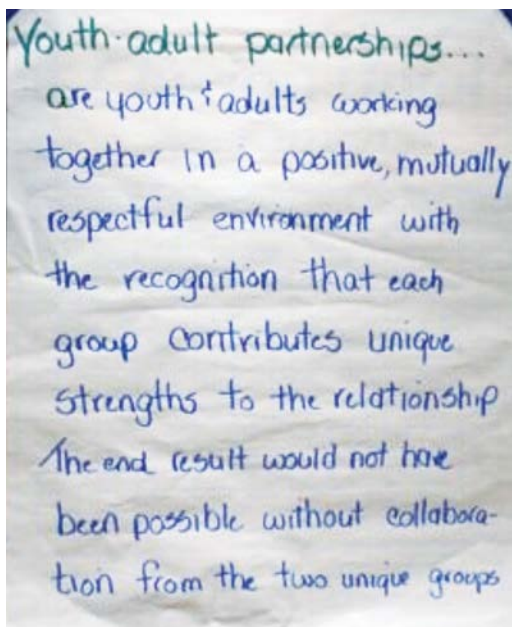 Youth-adult partnerships...
are youth & adults working
together in a positive, mutually
respectful environment with
the recognition that each
group contributes unique
strengths to the relationship
The end result would not have
been possible without collabora-
tion from the two unique groups